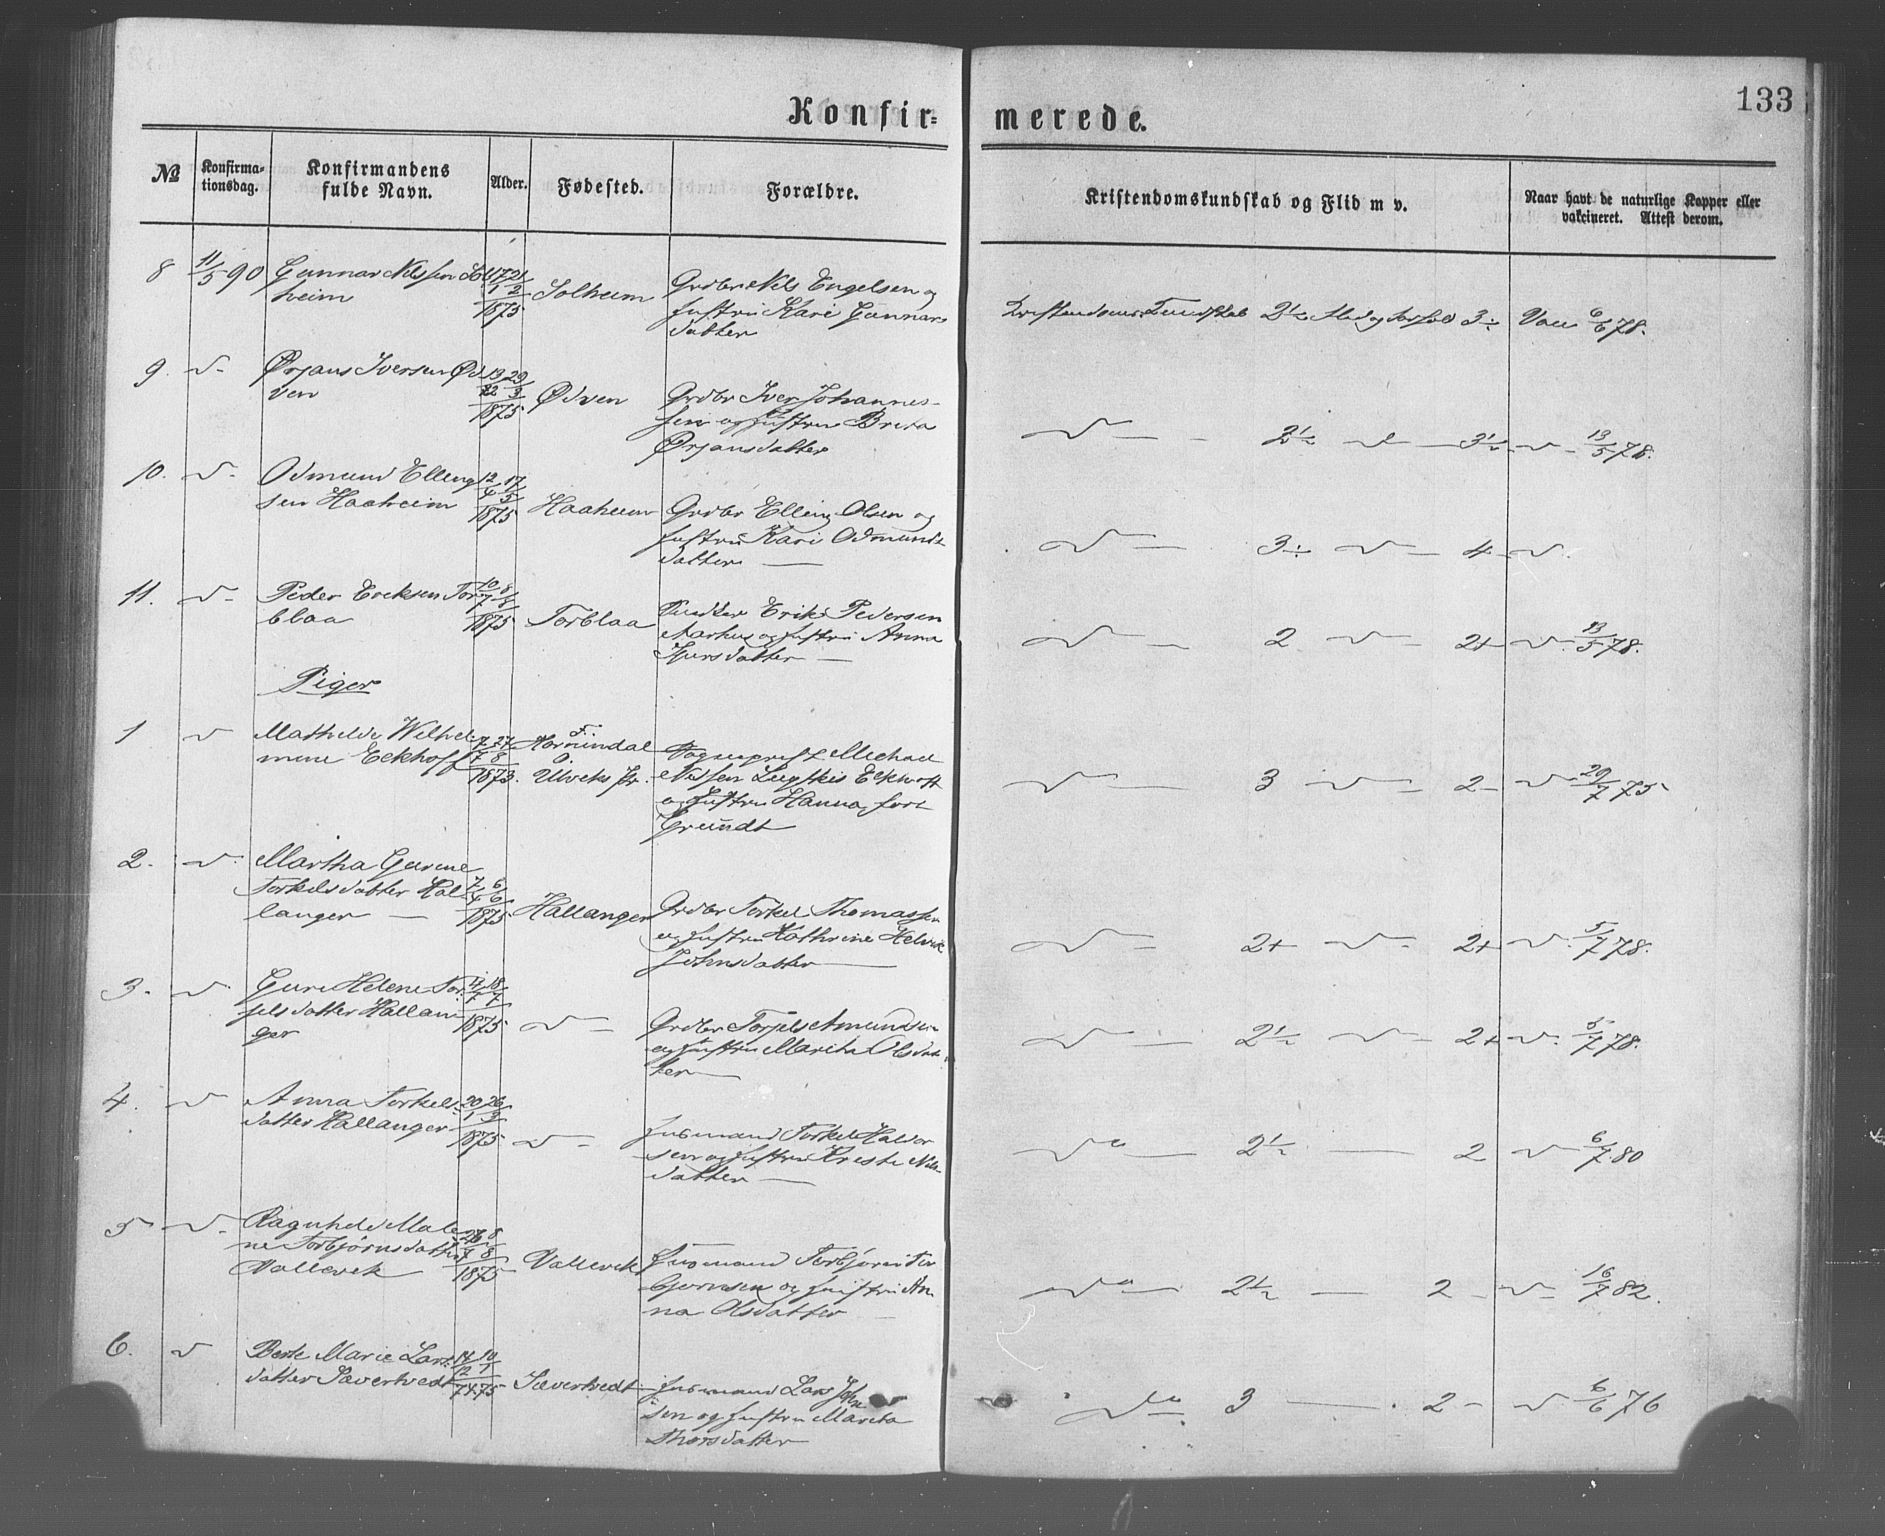 133
Konfir= merede.
№
Konfirma-
tionsdag.
Konfirmandens
fulde Navn.
Alder.
Fødested.
Forældre.
Kristendomskundskab og Flid m v.
Naar havt de naturlige Kopper eller
vakcineret. Attest derom.
8 11/5 90 Gunnar Nilssen Sol
heim
17/1 21/2
1875
Solheim
Grdbr Nils Engelsen og
Hustru Kari Gunnars
datter
Kristendoms Kundskab 2½ Flid og Forhold 3÷ Vac 6/6 78.
9. v- Ørjans Iversen Ød
ven
29/3
1875
Ødven
Grdbr Iver Johannes-
sen og Hustru Brita
Ørjansdatter
v— 2½ v— 3½ v- 13/5 78.
10. v- Odmund Elling
sen Haaheim
12/4 17/5
1875
Haaheim
Grdbr Elling Olsen og
Hustru Kari Odmunds
datter —
v— 3÷ v— 4 v.
11. v- Peder Eriksen Tor
blaa
10/7 8/8
1875
Torblaa
Erik Pedersen
Aarhus og Hustru Anna
datter —
v— 2 v— 2+ v. 13/5 78.
Piger
1 v Mathilde Wilhel
mine Eckhoff
7/7 27/8
1873.
F. Hornindal
Ø. Ulviks Pr.
Sogneprest Michael
Eckhoff
og Hustru Hanna, født
Grundt
v— 3 v— 2- v 29/7 75
2. v. Martha Gurine
Torkelsdatter Hal
langer —
7/4 6/6
1875
Hallanger
Grdbr Torkel Thomassen
og Hustru Kathrine Helvik
Johnsdatter —
v— 2+ v- 2+ v. 5/7 78.
3. v. Guri Helene Tor
jelsdatter Hallan
ger
18/7
1875
v—
Grdbr Torjels Amundsen
og Hustru Marita Olsdat
ter —
v— 2½ v— 2+ v. 5/7 78.
4. v Anna Torkels
datter Hallanger
20/1 26/3
1875
v-
Husmand Torkel Haldor
sen og Hustru Kristi Nils
datter —
v— 2½ — 2 v 6/7 80
5 v. Ragnhild Male
ne Torbjørnsdatter
Vallevik
26/7 8/8
1875
Vallevik
Husmand Torbjørn Tor
bjørnsen og Hustru An
na Olsdatter
v— 2½ — 2- v- 16/7 82.
6. v Berte Marie Lars
datter Sævertvedt
14/12 10/1
74 75
Sævertvedt
Husmand Lars John
sen og Hustru Marita
Thorsdatter
v— 3 — 2- v 6/6 76